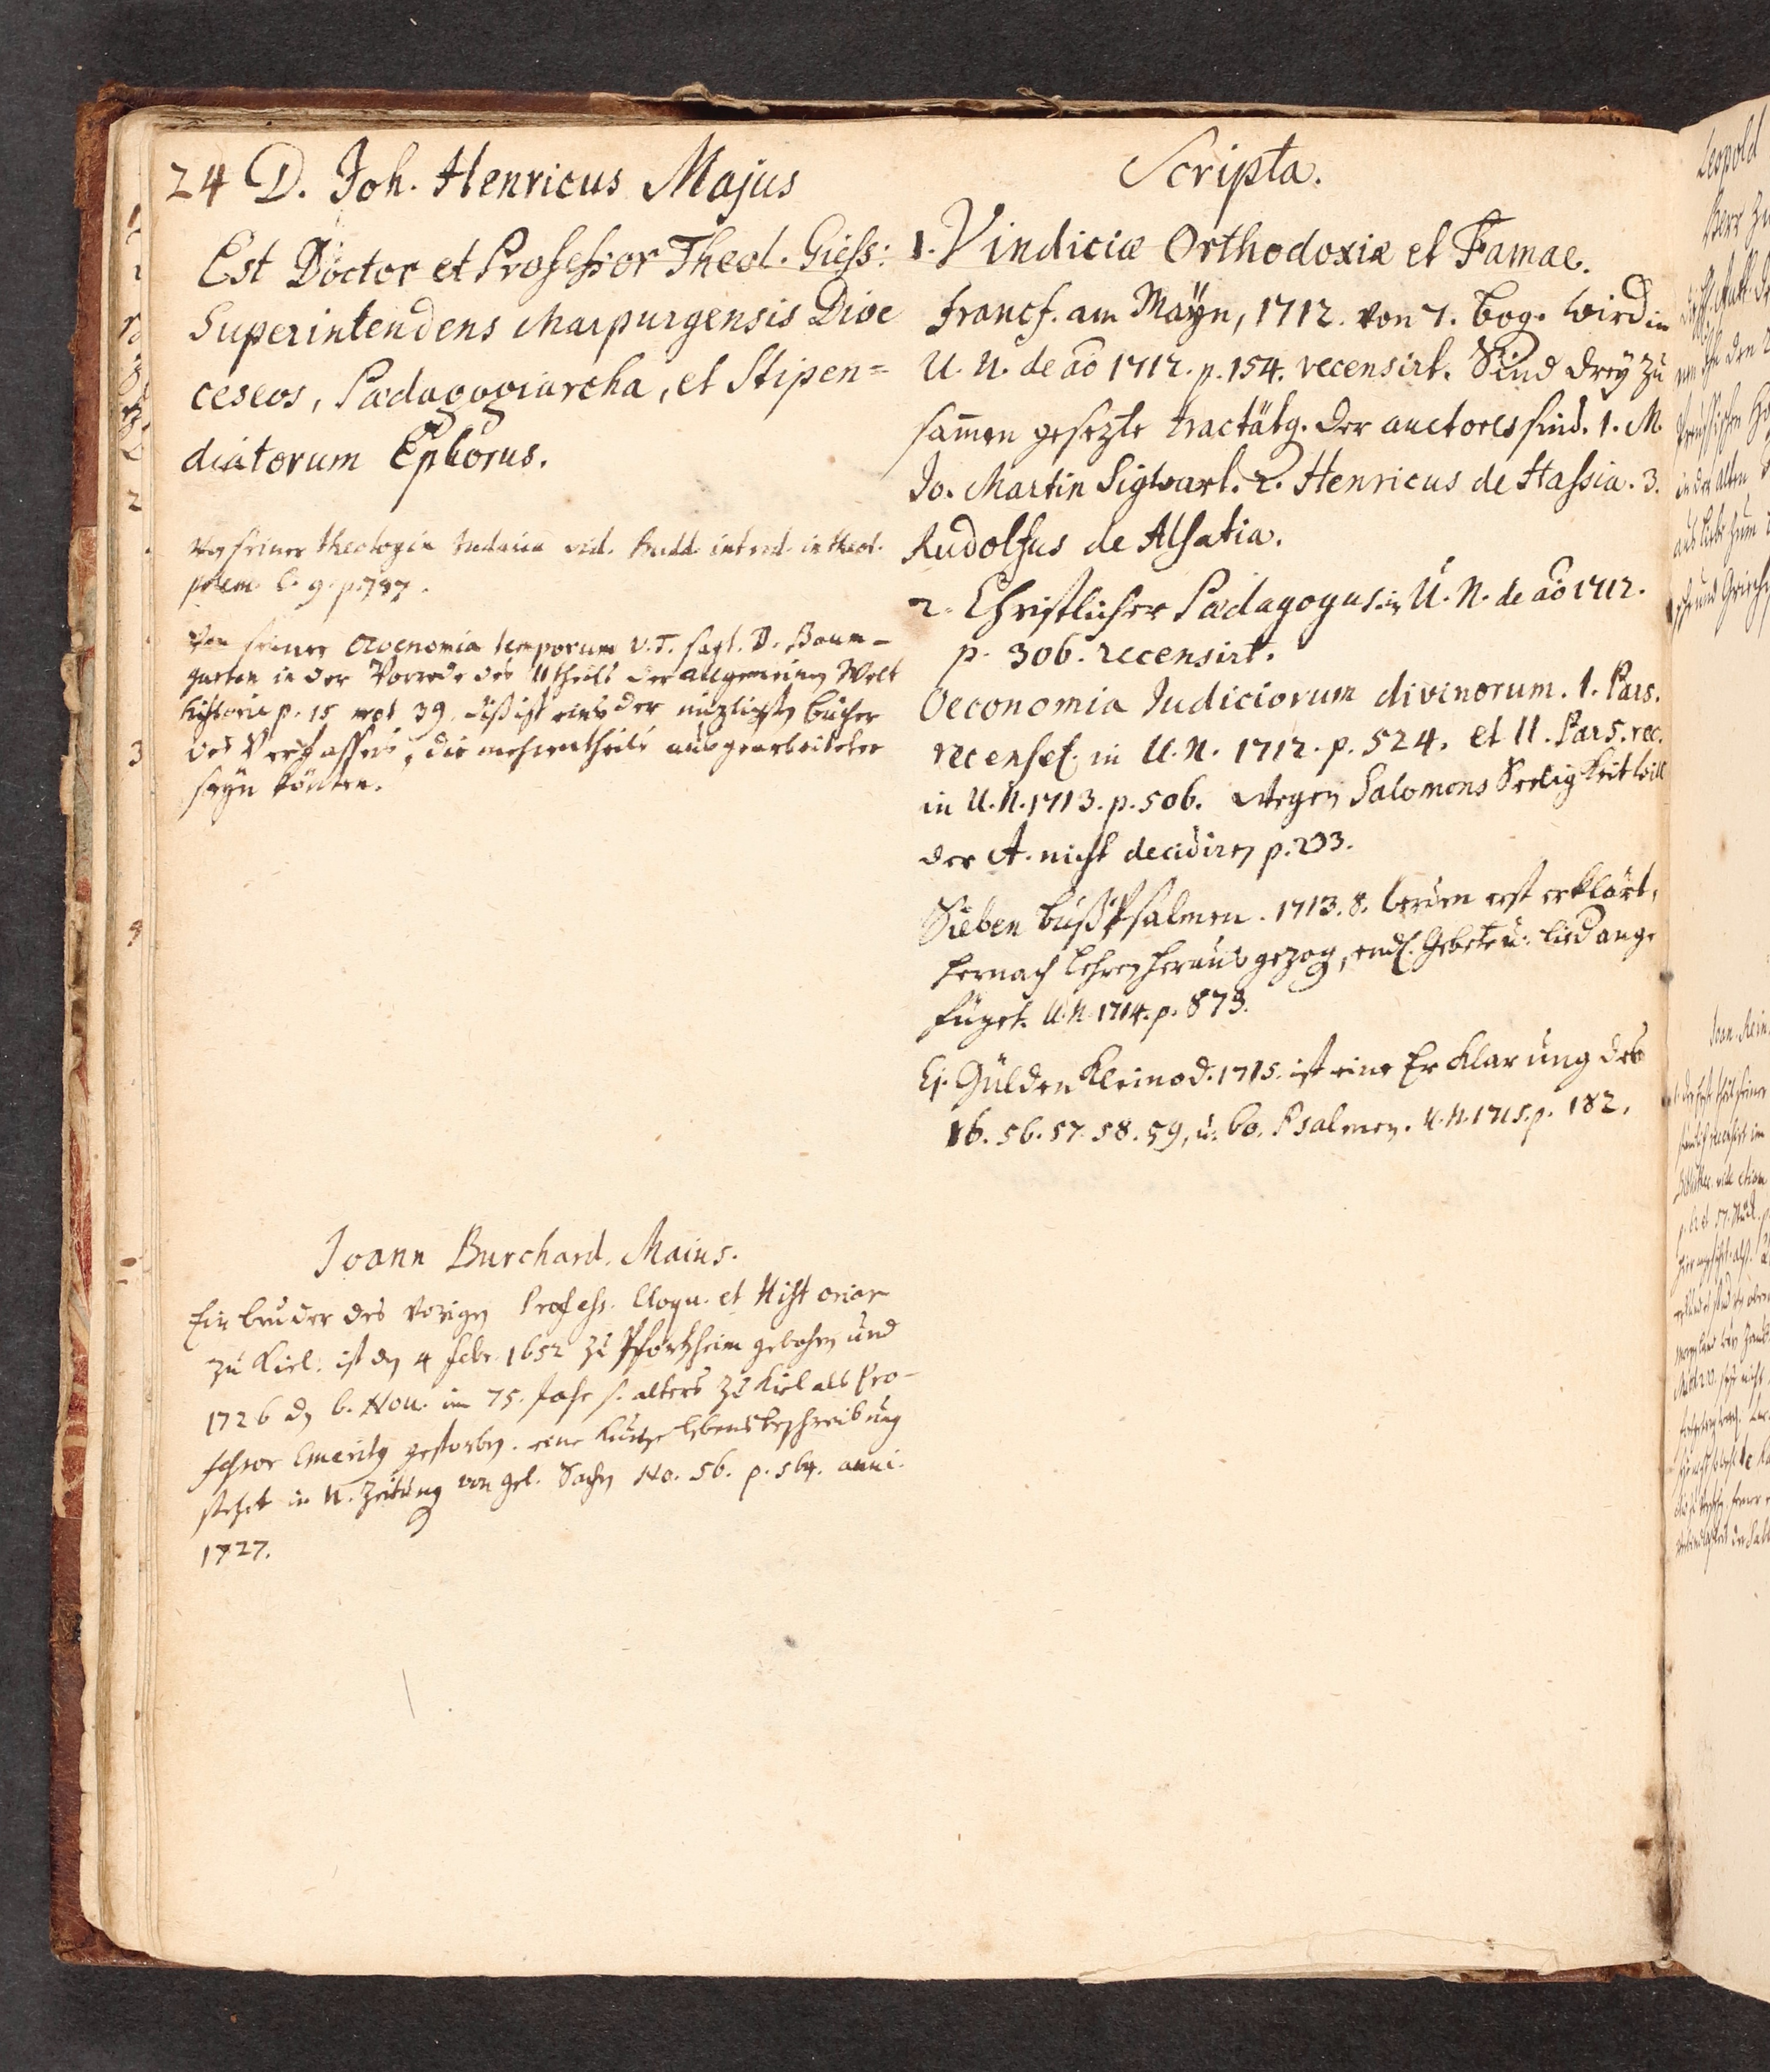 24 D. Joh. Henricus Majus
Est Doctor et Professor Theol. Giess:
Superintendens Marpurgensis Dioe
ceseos, Pædagogiarcha, et Stipen=
diatorum Ephorus.
Von seiner theologia Judaica vid. Budd. introd. in theol.
polem. l. 9. p. 787.
Von seiner Oeconomia temporum V. T. sagt. D. Baum-
garten in der Vorrede des II theils der allgemeinen Welt
historie p. 15 not 39. dis ist eins der nüzlichsten bücher
des Verfassers, die mehrentheils ausgearbeiteter
seyn könten.
Joann Burchard. Maius.
Ein bruder des Vorigen Profess. Eloqu. et Historiar
zu Kiel: ist den 4 Febr. 1652 zu Pfortzheim gebohren und
1726 d. 6. Nou. im 75. Jahr s. alters zu Kiel als Pro-
fessor Emeritus gestorben. eine kurtze lebensbeschreibung
stehet in N. Zeitung von gel. Sachen No. 56. p. 564. anni
1727.
Scripta.
1. Vindiciæ Orthodoxiæ et Famae.
Francf. am Mayn, 1712. von 7. bog. wird in
U. N. de aō 1712. p. 154. recensirt. Sind drey zu
sam̄en gesezte tractätg. Der auctores sind. 1. M.
Jo. Martin Sigwart. 2. Henricus de Hassia. 3.
Rudolfus de Alsatia.
2. Christlicher Pædagogus. in U. N. de aō 1712.
p. 306. recensirt.
Oeconomia Judiciorum divinorum. 1. Pars.
recenset. in U. N. 1712. p. 524. et II. Pars. rec.
in U. N. 1713. p. 506. Wegen Salomons Seeligkeit will
der A. nicht decidiren p. 233.
Sieben bußPsalmen. 1713. 8. werden erst erklärt,
hernach lehren heraus gezog, endl. Gebete u. lied ange
füget. U. N. 1714. p. 873.
Ej. Gülden Kleinod. 1715. ist eine Erklarung des
16. 56. 57. 58. 59. u. 60. Psalmen. U. N. 1715. p. 182.
Leopold